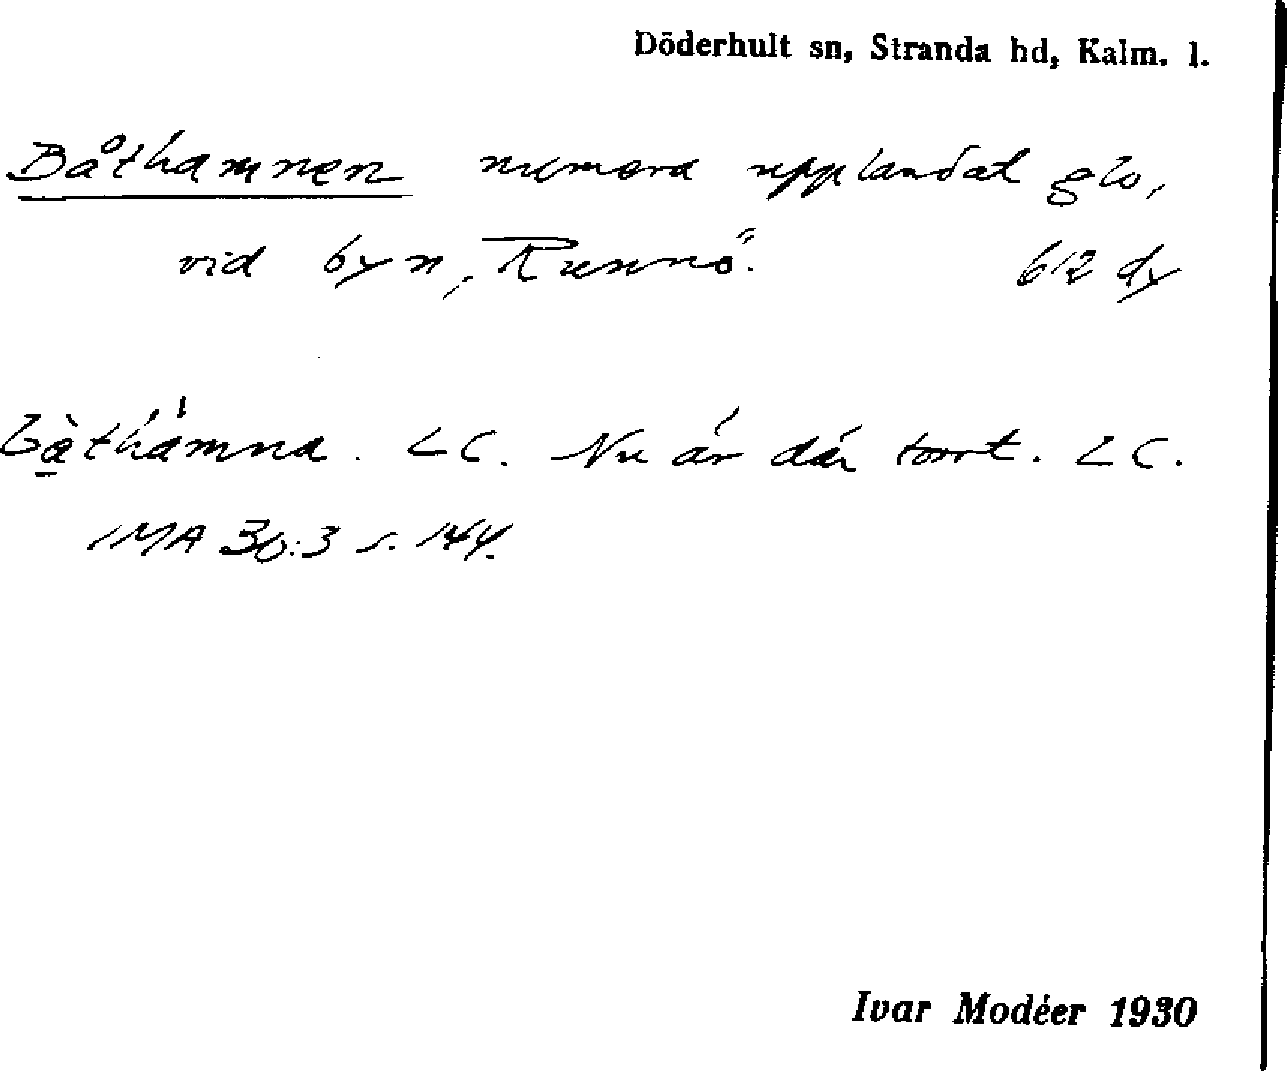 Döderhult sn, Stranda hd, Kalm. l.
Båthamnen numera upplandat glo,
vid byn, Runnö. 612 dy
bàthámna. LC. Nu är där torrt. LC.
IMA 30:3 s. 144.
Ivar Modéer 1930